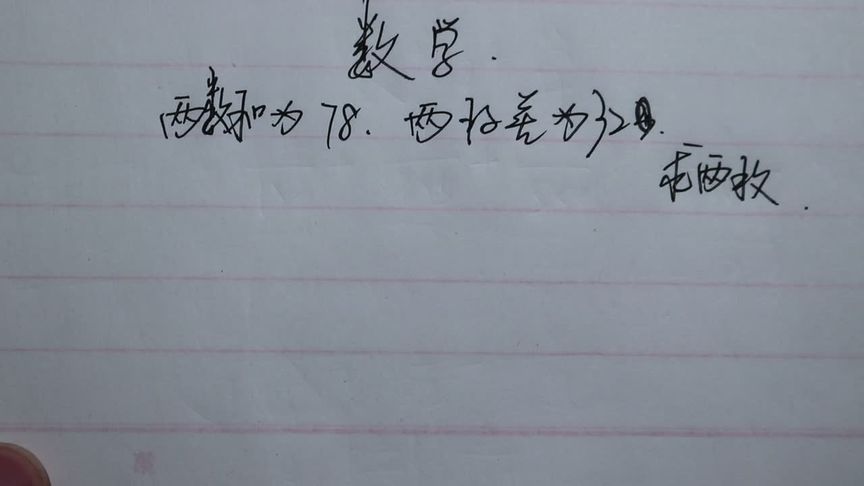 数学.
两数和为78.两数差为32.
求两数.